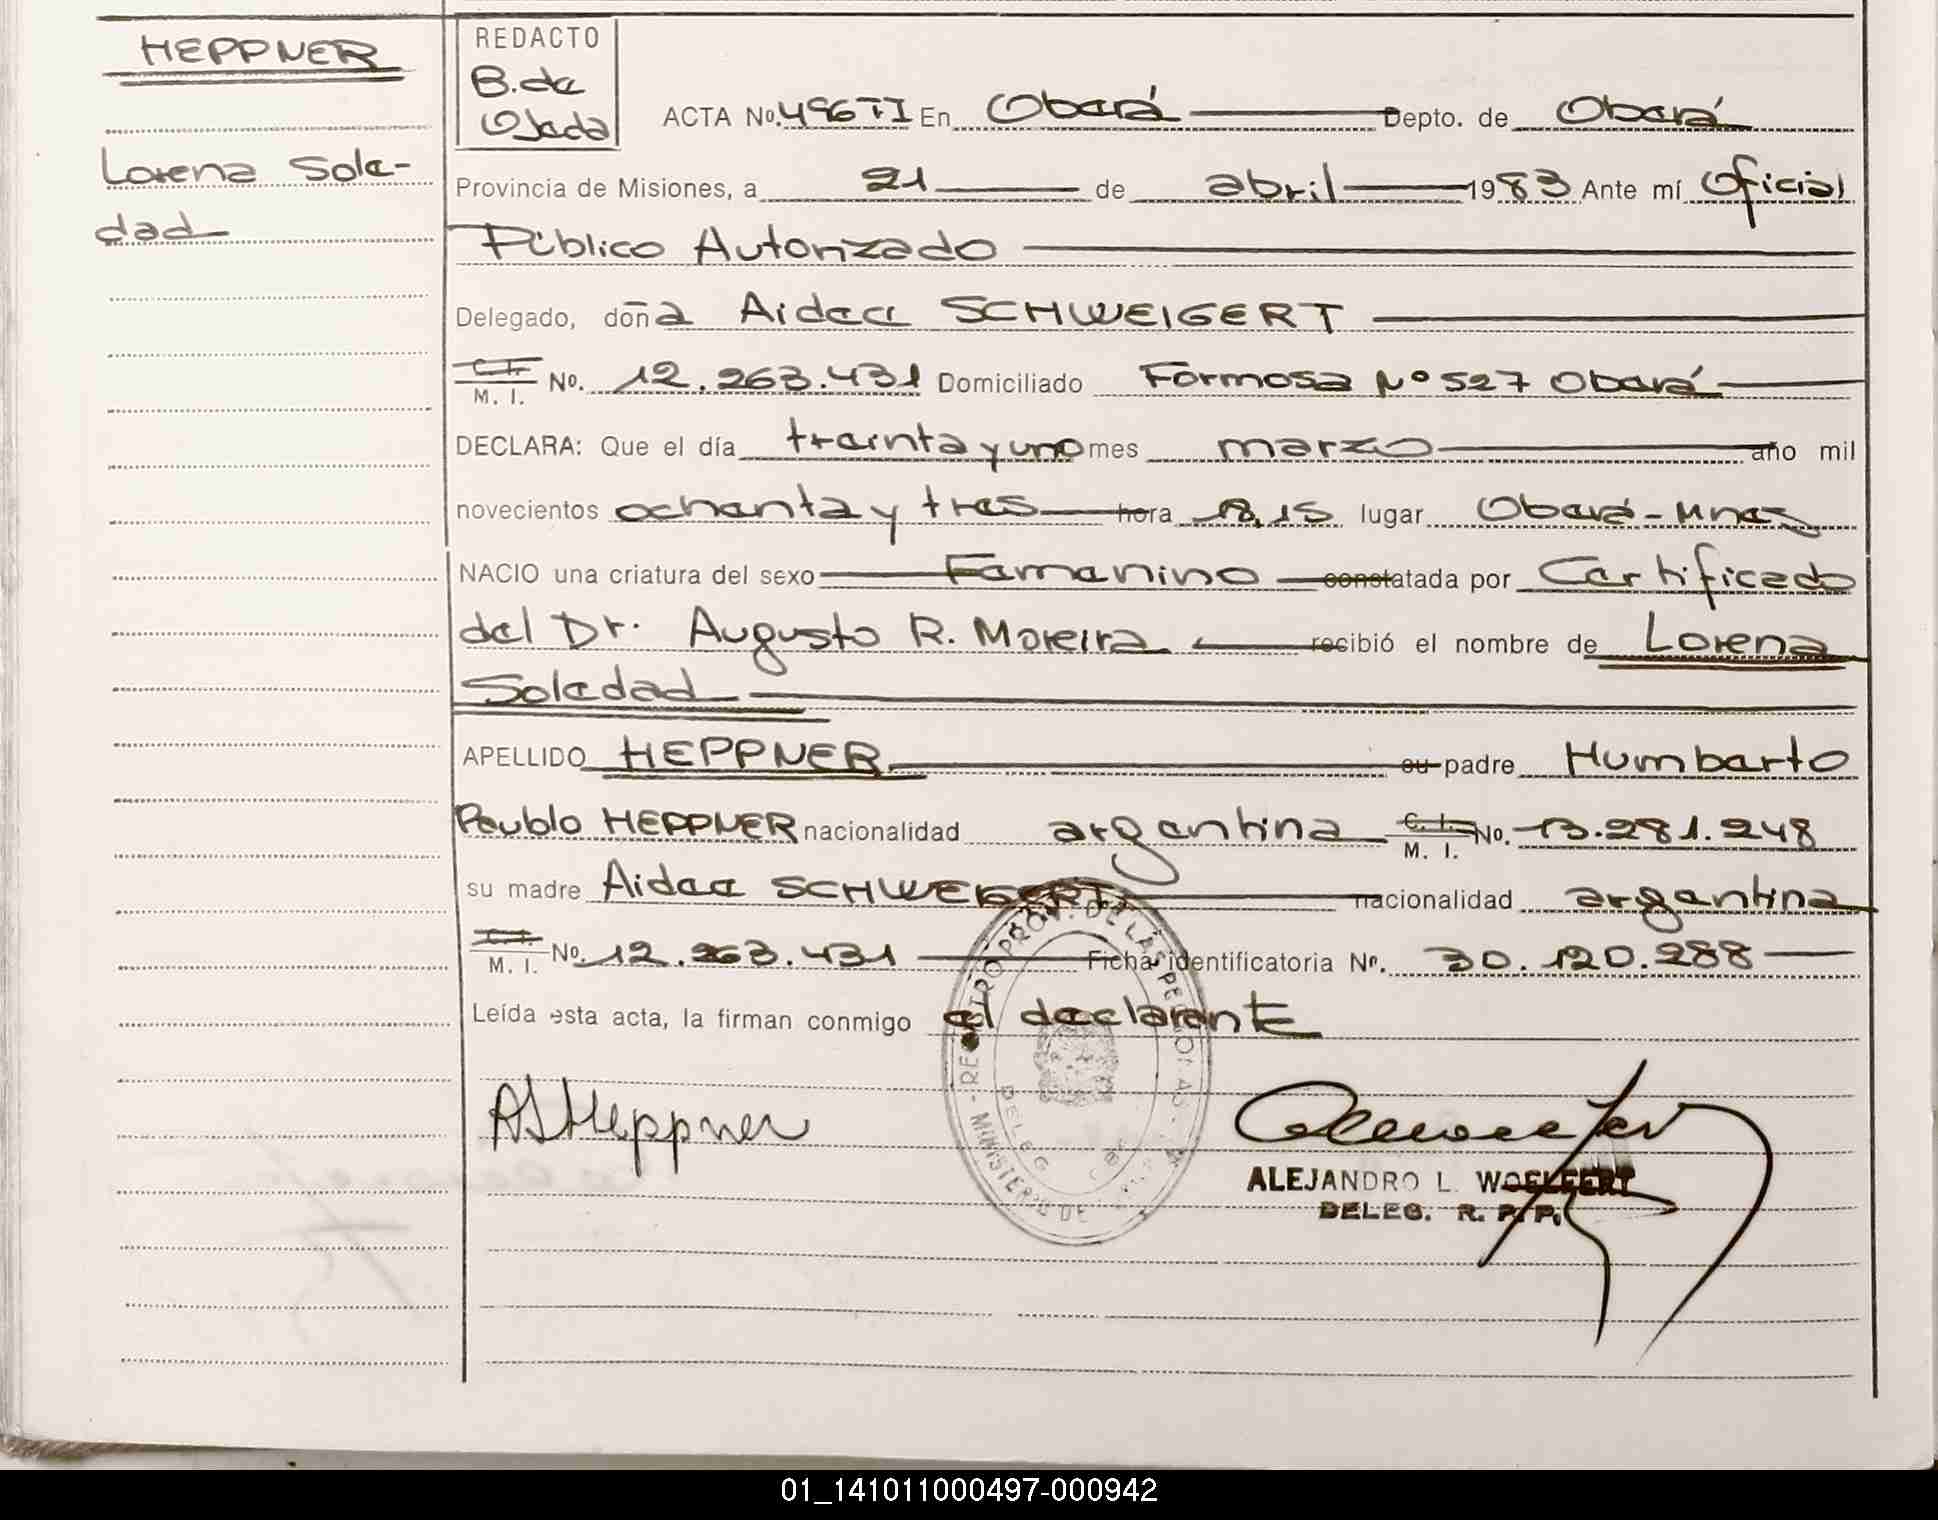 HEPPNER
Lorena Sole-
dad
REDACTO
B. de
Ojeda
ACTA No. 496 TI En Oberá Depto. de Oberá
Provincia de Misiones, a 21 de abril 1983 Ante mí Oficial
Público Autorizado
Delegado, doña Aidee SCHWEIGERT
C. I.
M. I. No. 12.263.431 Domiciliado Formosa Nº 527 Oberá
DECLARA: Que el día treinta y uno mes marzo año mil
novecientos ochenta y tres hora 18,15 lugar Oberá-Mnes
NACIO una criatura del sexo Femenino constatada por Certificado
del Dr. Augusto R. Moreira recibió el nombre de Lorena
Soledad
APELLIDO HEPPNER su padre Humberto
HEPPNER nacionalidad argentina C. I.
M. I. No. 13.281.248
su madre Aidee SCHWEIGERT nacionalidad argentina
C. I.
M. I. No. 12.263.431 Ficha identificatoria Nº. 30.120.288
Leída esta acta, la firman conmigo el declarante
Heppner
REGISTRO PROV. DE LAS PERSONAS
MINISTERIO DE
DELEG
ALEJANDRO L. WOELFERT
DELEG. R. P. P.
01_141011000497-000942